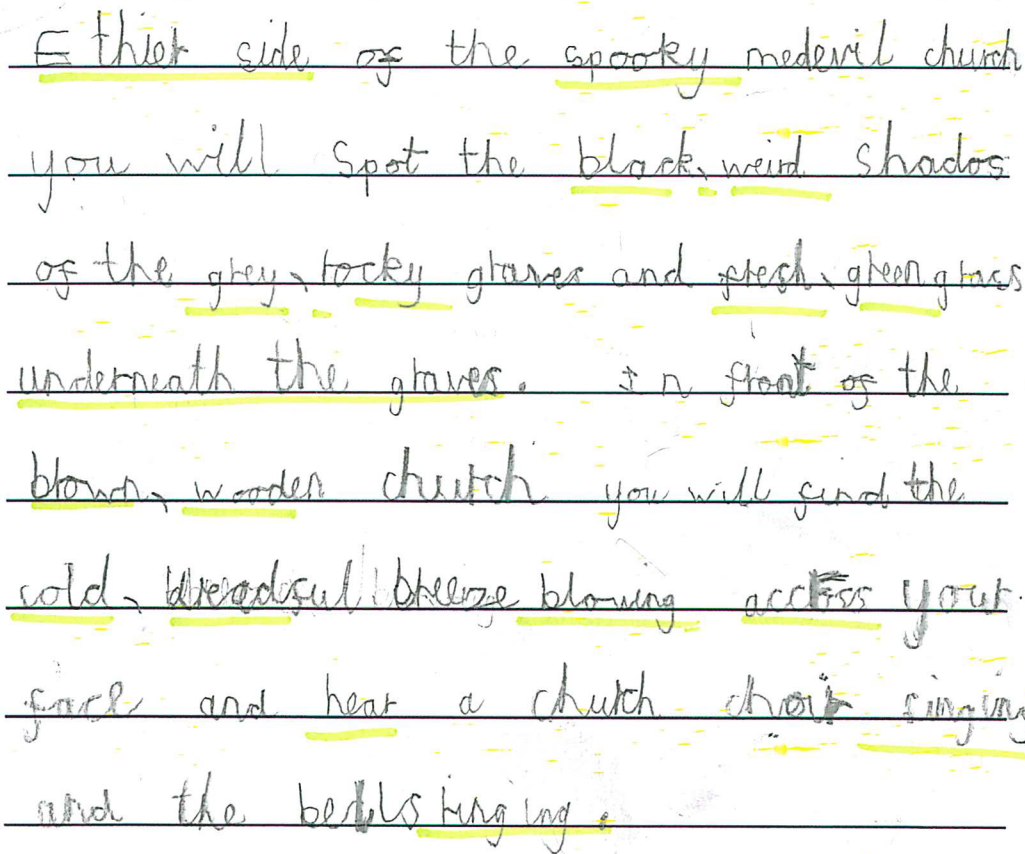 Ethier side of the spooky medevil church
you will spot the black, weird shados
of the grey, rocky graves and fresh, green grass
underneath the graves. In front of the
brown, wooden church you will find the
cold, dreadful breeze blowing accross your
face and hear a church choir singing
and the bells ringing.